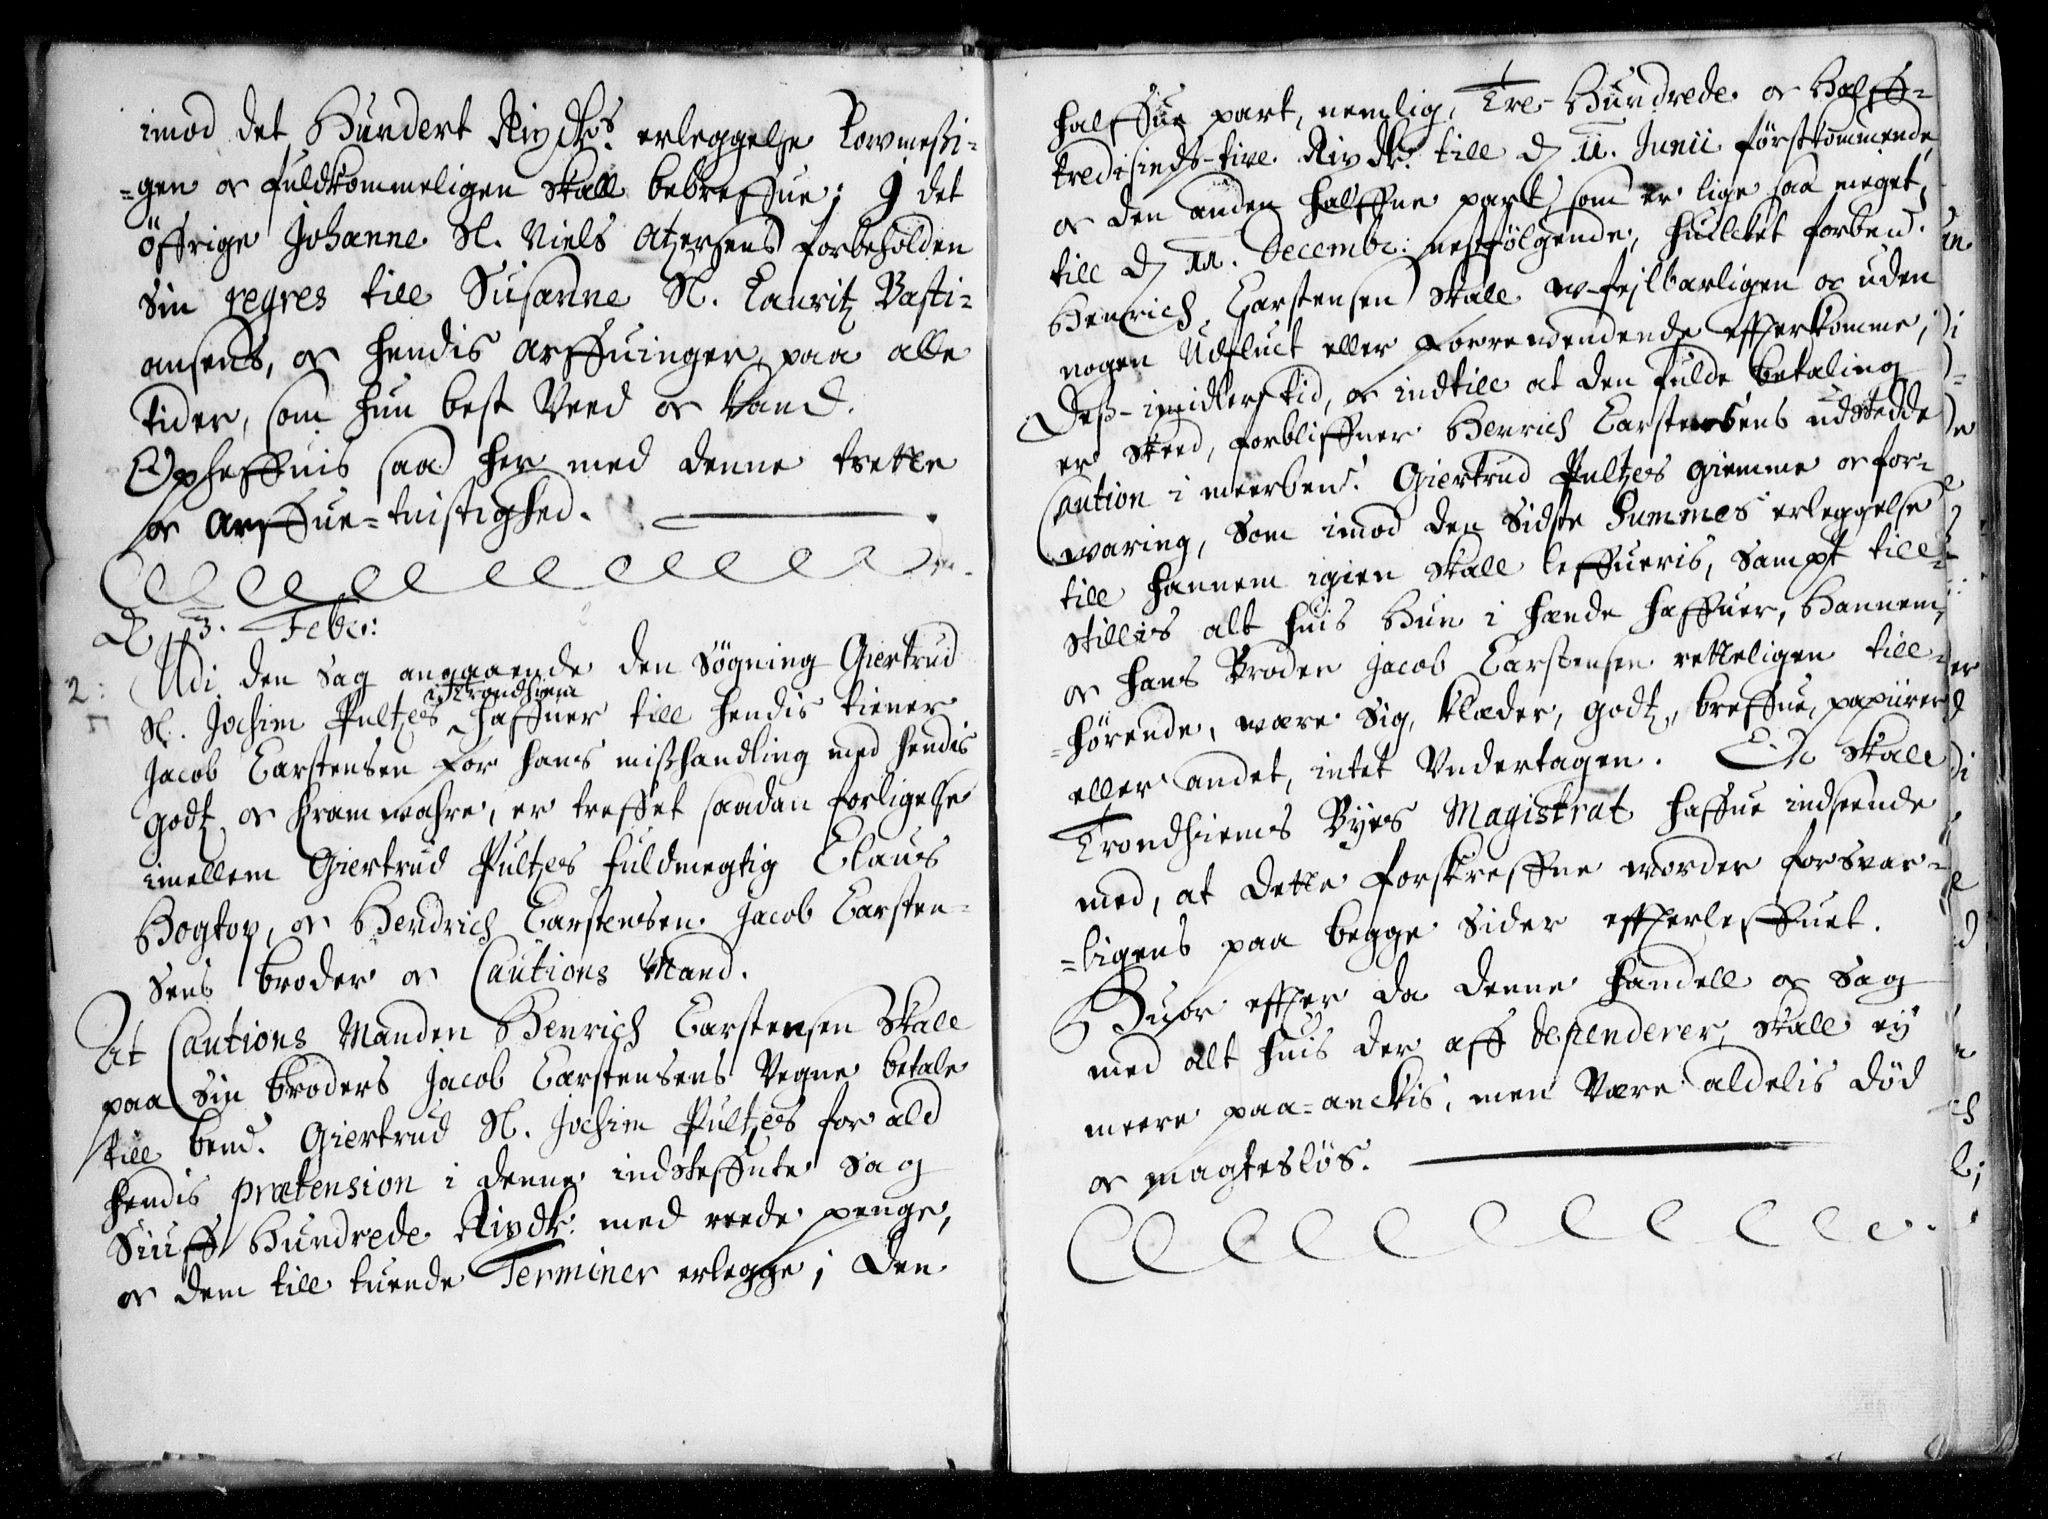 imod det Hundert Rixdlrs. erleggelse lowmessi-
=gen oc fuldkommeligen skall bekreffue; I det
öffrige Johanne Sl. Niels Atzersens forbeholden
sin regres till Susanne Sl. Lauritz Basti-
ansens, oc hendis arffuinger, paa alle
tider, som hun best Veed oc kand.
Opheffuis saa her med denne trette
oc arffue-tuistighed.
D. 3. Febr:
2: Udi den sag angaaende den Søgning Giertrud
i Trondhiem
Sl. Jochim Pultzes haffuer till hendis tiener
Jacob Carstensen for hans misshandling med hendis
godtz oc kramwahre, er treffet saadan forligelse
imellem Giertrud Pultzes fuldmegtig Claus
Bogtop, oc Hendrich Carstensen Jacob Carsten-
sens broder oc Cautions Mand.
At Cautions Manden Henrich Carstensen skall
paa sin broders Jacob Carstensens Vegne betale
till bemt. Giertrud Sl. Jochim Pultzes for ald
hendis prætension i denne indsteffnte sag
Siuff Hundrede Rixdlr. med reede penge,
oc dem till tuende Terminer erlegge; den
halffue part, nemlig, Tre Hundrede oc Halff-
tredisinds-tiue Rixdlr. till d 11. Junii förstkommende,
oc den anden halffue part som er lige saa meget,
till d 11. Decembr: nestfölgende, huilcket forbemt.
Henrich Carstensen skall w-fejlbarligen oc uden
nogen Udfluct eller forrendendende effterkomme;
Dess-imidlertid, oc indtill at den fulde betaling
er skeed, forbliffuer Henrich Carstensens udstedde
Caution i meerbemt. Giertrud Pultzes giemme oc for-
waring, som imod den sidste Summes erleggelse
till hannem igien skall leffueris, sampt till-
stillis alt huis hun i hænde haffuer, hannem,
oc hans broder Jacob Carstensen retteligen till-
=hørende, were sig, klæder, godtz, breffue, papiirer
eller andet, intet Vndertagen. Oc skall
Trondhiems Byes Magistrat haffue indseende
med, at dette forskreffne worder forsvar-
=ligens paa begge sider effterleffuet.
Huor effter da denne handell oc sag
med alt huis der aff dependerer, skall ey
meere paa-anckis, men Være aldelis död
oc magteslös.